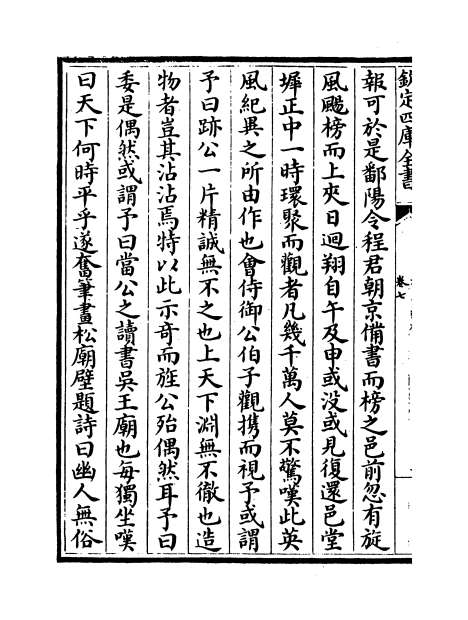 欽定四庫全書
卷七
報可於是鄱陽令程君朝京備書而榜之邑前忽有旋
風颺榜而上夾日迴翔自午及申或没或見復還邑堂
墀正中一時環聚而觀者凡幾千萬人莫不驚嘆此英
風紀異之所由作也會侍御公伯子觀携而視予或謂
予曰跡公一片精誠無不之也上天下淵無不徹也造
物者豈其沾沾焉特以此示奇而旌公殆偶然耳予曰
委是偶然或謂予曰當公之讀書吳王廟也每獨坐嘆
曰天下何時平乎遂奮筆畫松廟壁題詩曰幽人無俗